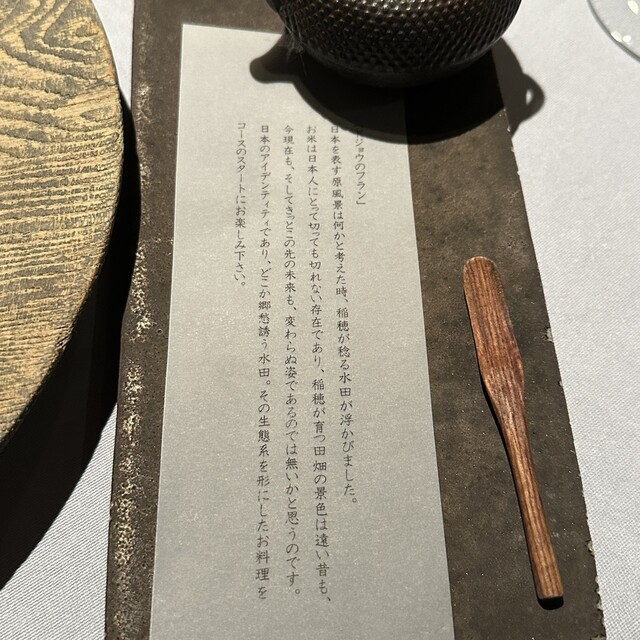 ジョウのフラン」
日本を表す原風景は何かと考えた時、稲穂が稔る水田が浮かびました。
お米は日本人にとって切っても切れない存在であり、稲穂が育つ田畑の景色は遠い昔も、
今現在も、そしてきっとこの先の未来も、変わらぬ姿であるのでは無いかと思うのです。
日本のアイデンティティであり、どこか郷愁誘う水田。その生態系を形にしたお料理を
コースのスタートにお楽しみ下さい。